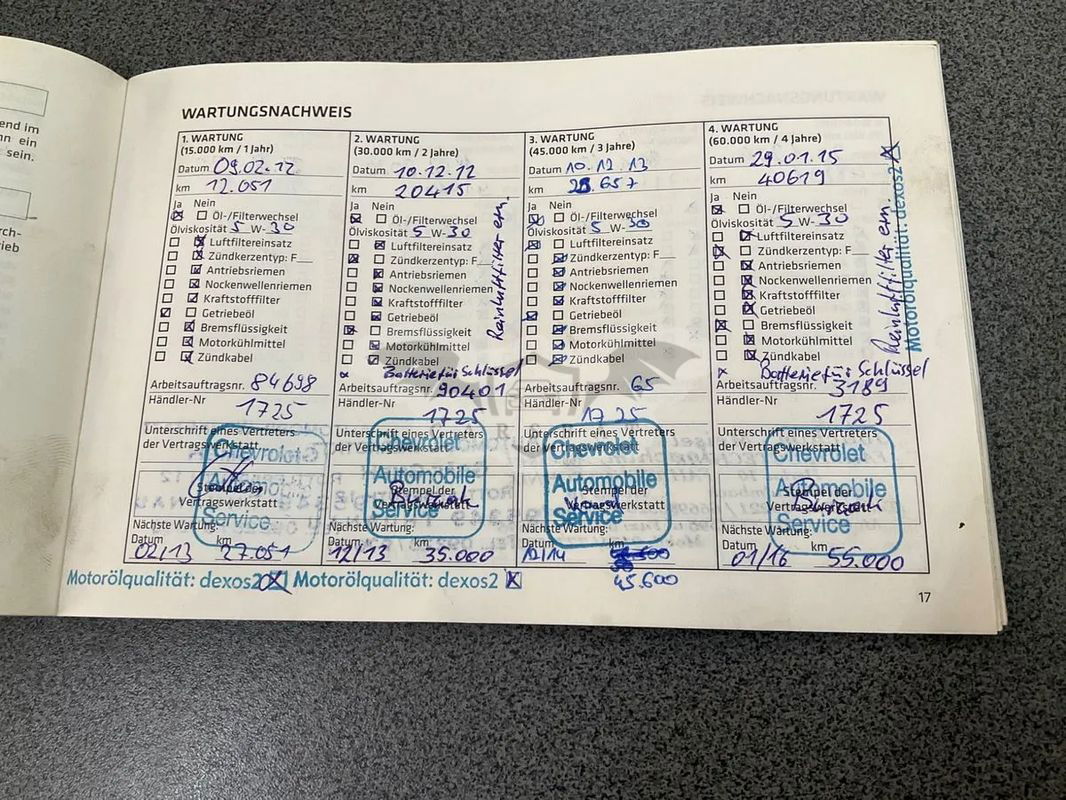 end im
n ein
sein.
rch-
rieb
WARTUNGSNACHWEIS
1. WARTUNG
(15.000 km / 1 Jahr)
Datum 09.02.12
km 12.051
Ja Nein
Öl-/Filterwechsel
Ölviskosität 5 W-30
Luftfiltereinsatz
Zündkerzentyp: F
Antriebsriemen
Nockenwellenriemen
Kraftstofffilter
Getriebeöl
Bremsflüssigkeit
Motorkühlmittel
Zündkabel
Arbeitsauftragsnr. 84698
Händler-Nr
1725
Unterschrift eines Vertreters
der Vertragswerkstatt
Chevrolet
Automobile
Service
Stempel der
Vertragswerkstatt
Nächste Wartung:
Datum km
02/13 27.051
2. WARTUNG
(30.000 km / 2 Jahre)
Datum 10.12.12
km 20415
Ja Nein
Öl-/Filterwechsel
Ölviskosität 5 W-30
Luftfiltereinsatz
Zündkerzentyp: F
Antriebsriemen
Nockenwellenriemen
Kraftstofffilter
Getriebeöl
Bremsflüssigkeit
Motorkühlmittel
Zündkabel
Reinluftfilter ern.
x Batterie für Schlüssel
Arbeitsauftragsnr. 90401
Händler-Nr
1725
Unterschrift eines Vertreters
der Vertragswerkstatt
Chevrolet
Automobile
Service
Stempel der
Vertragswerkstatt
Nächste Wartung:
Datum km
12/13 35.000
3. WARTUNG
(45.000 km / 3 Jahre)
Datum 10.12.13
km
Ja Nein
Öl-/Filterwechsel
Ölviskosität 5 W-30
Luftfiltereinsatz
Zündkerzentyp: F
Antriebsriemen
Nockenwellenriemen
Kraftstofffilter
Getriebeöl
Bremsflüssigkeit
Motorkühlmittel
Zündkabel
Arbeitsauftragsnr. 65
Händler-Nr
1725
Unterschrift eines Vertreters
der Vertragswerkstatt
Chevrolet
Automobile
Service
Stempel der
Vertragswerkstatt
Nächste Wartung:
Datum km
12/14
45.600
4. WARTUNG
(60.000 km / 4 Jahre)
Datum 29.01.15
km 40619
Ja Nein
Öl-/Filterwechsel
Ölviskosität 5 W-30
Luftfiltereinsatz
Zündkerzentyp: F
Antriebsriemen
Nockenwellenriemen
Kraftstofffilter
Getriebeöl
Bremsflüssigkeit
Motorkühlmittel
Zündkabel
Reinluftfilter ern.
Motorölqualität: dexos2
x Batterie für Schlüssel
Arbeitsauftragsnr. 3189
Händler-Nr
1725
Unterschrift eines Vertreters
der Vertragswerkstatt
Chevrolet
Automobile
Service
Stempel der
Vertragswerkstatt
Nächste Wartung:
Datum km
01/16 55.000
Motorölqualität: dexos2 Motorölqualität: dexos2
17